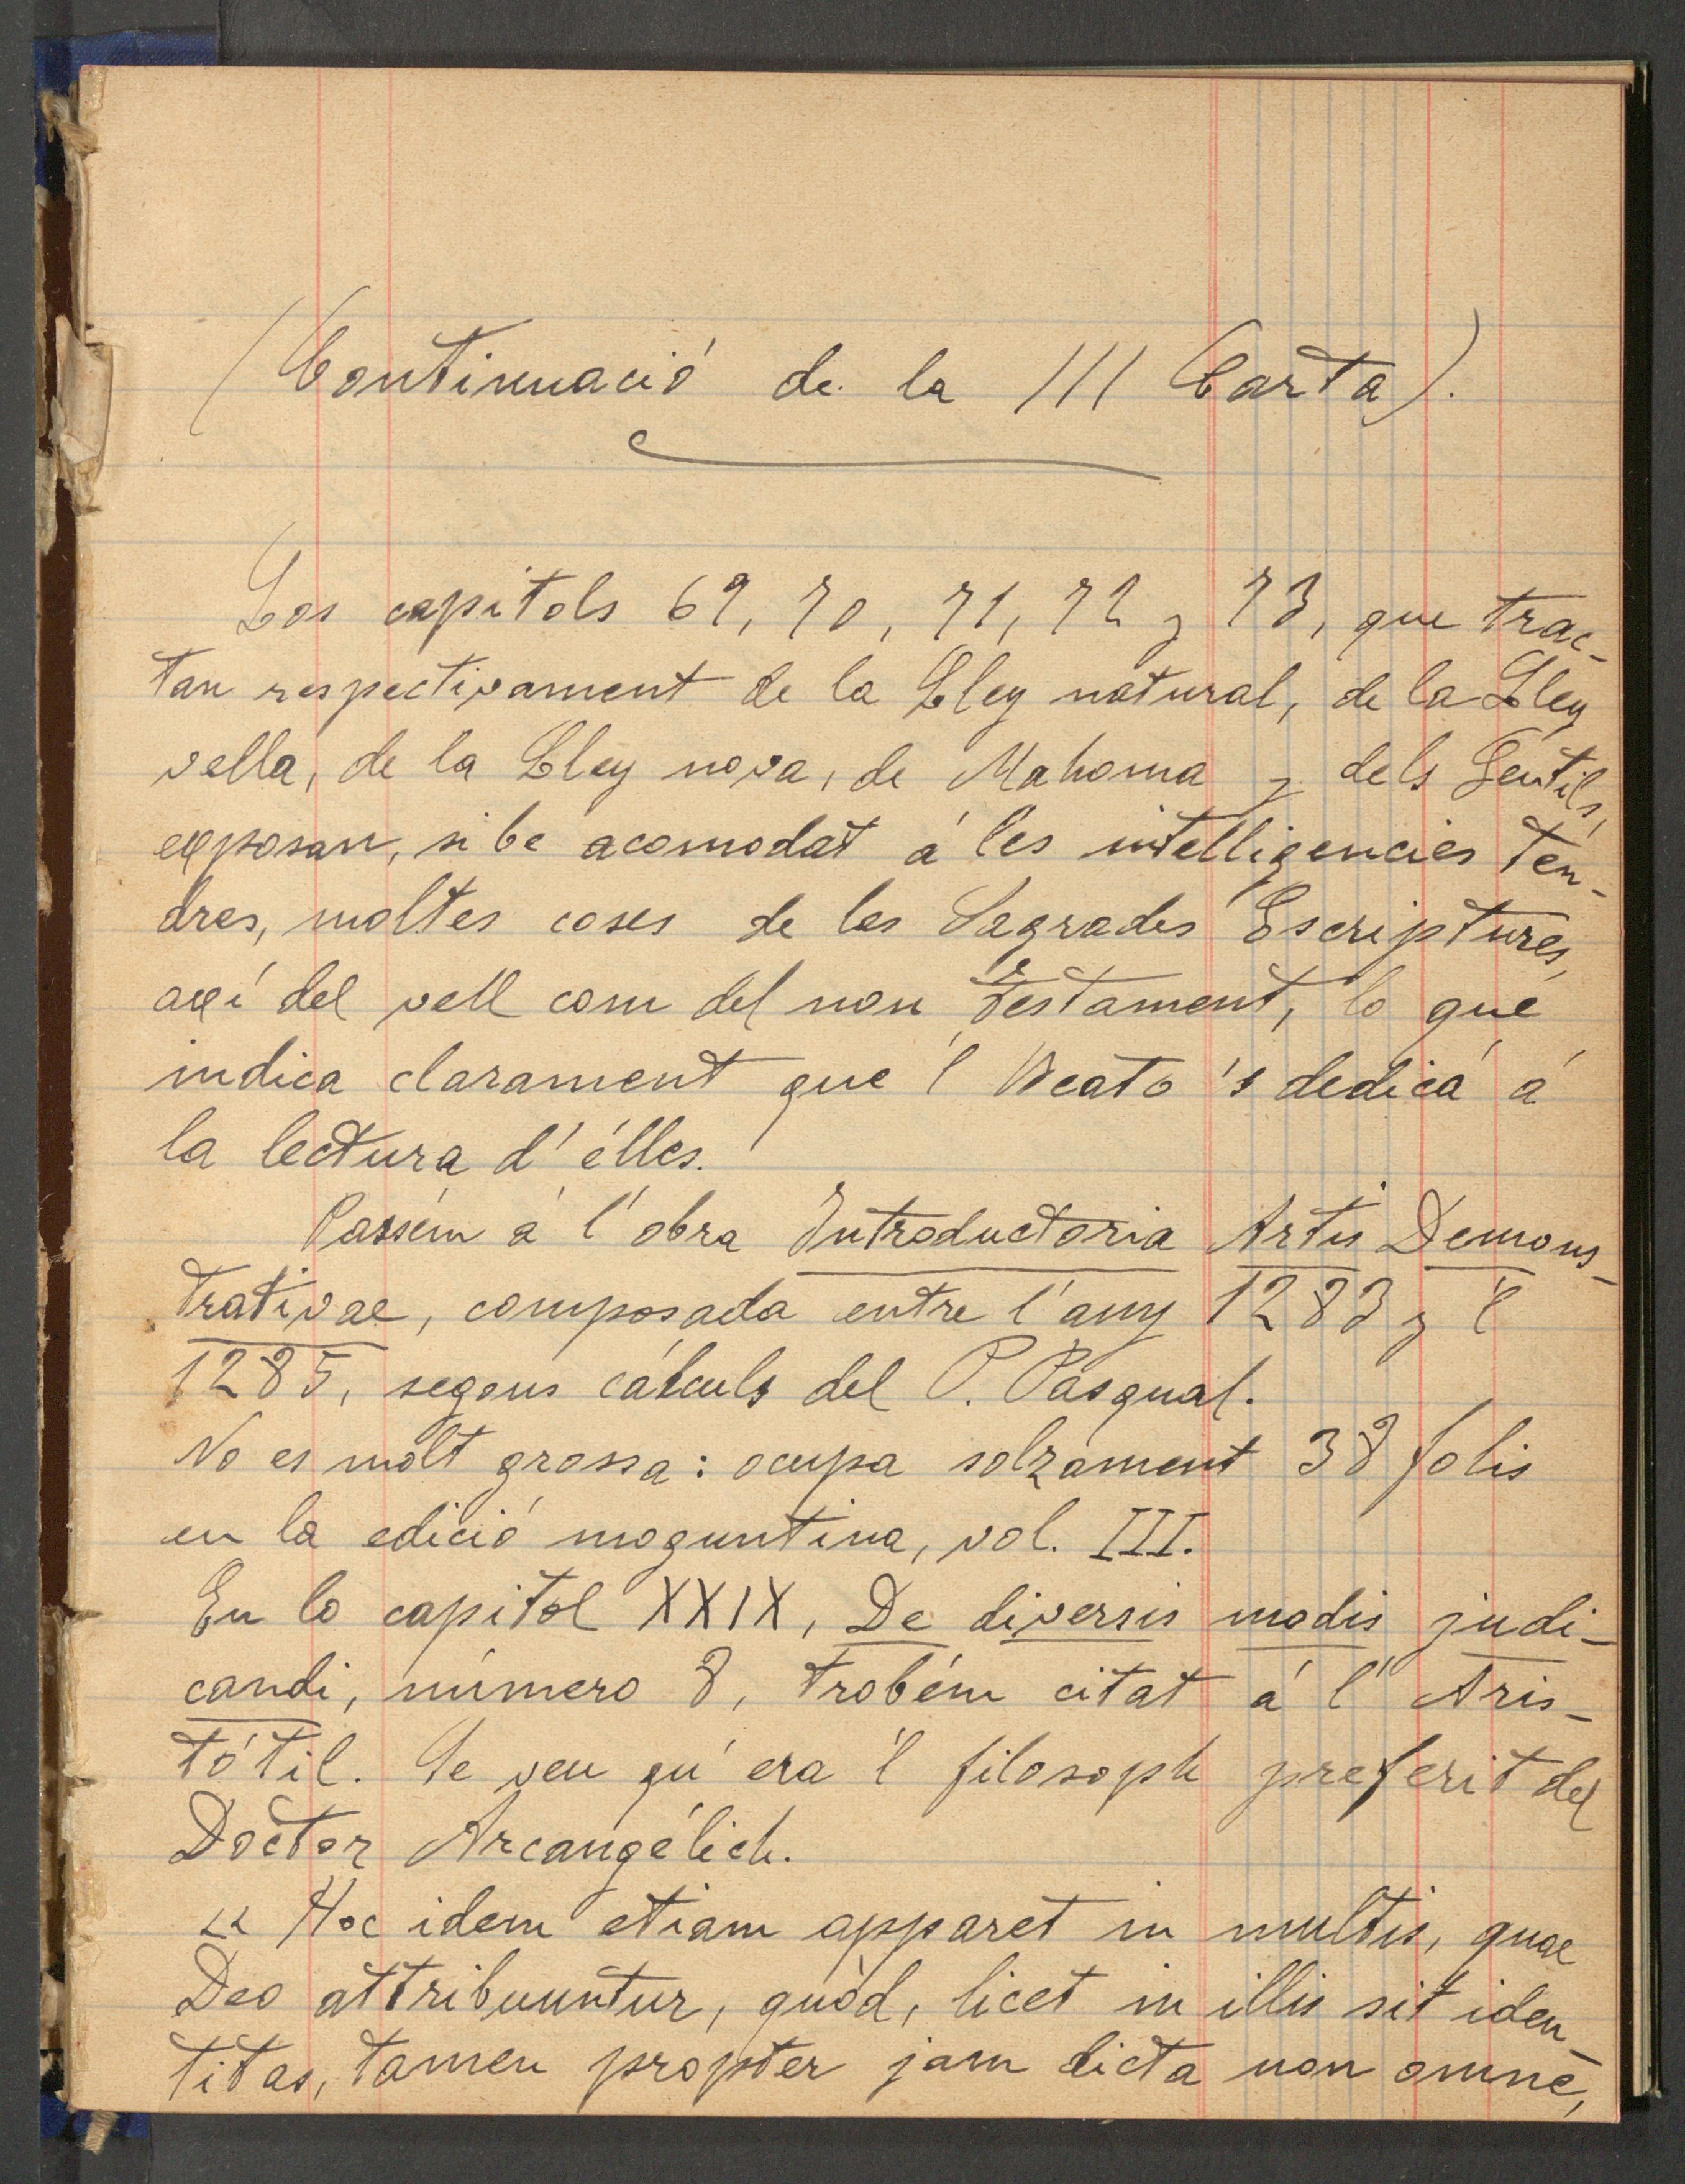 (Continuació de la III Carta).
Los capitols 69, 70, 71, 72 y 73, que trac-
tan respectivament de la Lley natural, de la Lley
vella, de la Lley nova, de Mahoma y dels Gentils,
exposan, si be acomodat á les intelligencies ten-
dres, moltes coses de les Sagrades Escriptures,
axí del vell com del nou Testament, lo que
indica clarament que 'l Beato 's dedicá á
la lectura d' élles.
Passém á l' obra Introductoria Artis Demons-
trativae, composada entre l' any 1283 y 'l
1285, segons cálculs del P. Pasqual.
No es molt grossa: ocupa solzament 38 folis
en la edició moguntina, vol. III.
En lo capitol XXIX, De diversis modis judi-
candi, número 8, trobém citat á l' Aris-
tótil. Se veu qu' era 'l filosoph preferit del
Doctor Arcangélich.
« Hoc idem etiam apparet in multis, quae
Deo attribuuntur, quòd, licet in illis sit iden-
titas, tamen propter jam dicta non omne,